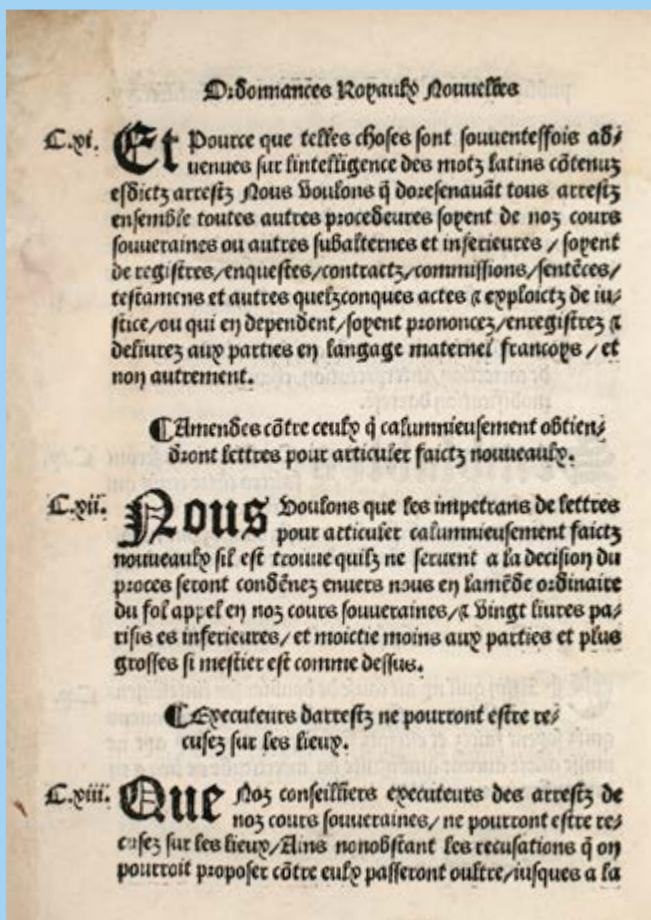 Ordonnances Royaulx Nouvelles
C.xi. Et Pource que telles choses sont souuenteffois ad/
uenues sur lintelligence des motz latins cõtenuz
esdictz arrestz Nous voulons q̃ doresenauãt tous arrestz
ensemble toutes autres procedeures soyent de noz cours
souueraines ou autres subalternes et inferieures / soyent
de registres/enquestes/contractz/commissions/sentẽces/
testamens et autres quelzconques actes & exploictz de iu/
stice/ou qui en dependent/soyent prononcez/enregistrez &
deliurez aux parties en langage maternel francoys / et
non autrement.
¶Amendes cõtre ceulx q̃ calumnieusement obtien/
dront lettres pour articuler faictz nouueaulx.
C.xii. Nous voulons que les impetrans de lettres
pour articuler calumnieusement faictz
nouueaulx sil est trouue quilz ne seruent a la decision du
proces seront condẽnez enuers nous en lamẽde ordinaire
du fol appel en noz cours souueraines/& vingt liures pa/
risis es inferieures/ et moictie moins aux parties et plus
grosses si mestier est comme dessus.
¶Executeurs darrestz ne pourront estre re/
cusez sur les lieux.
C.xiii. Que Noz conseilliers executeurs des arrestz de
noz cours souueraines/ ne pourront estre re/
cusez sur les lieux/Ains nonobstant les recusations q̃ on
pourroit proposer cõtre eulx passeront oultre/iusques a la